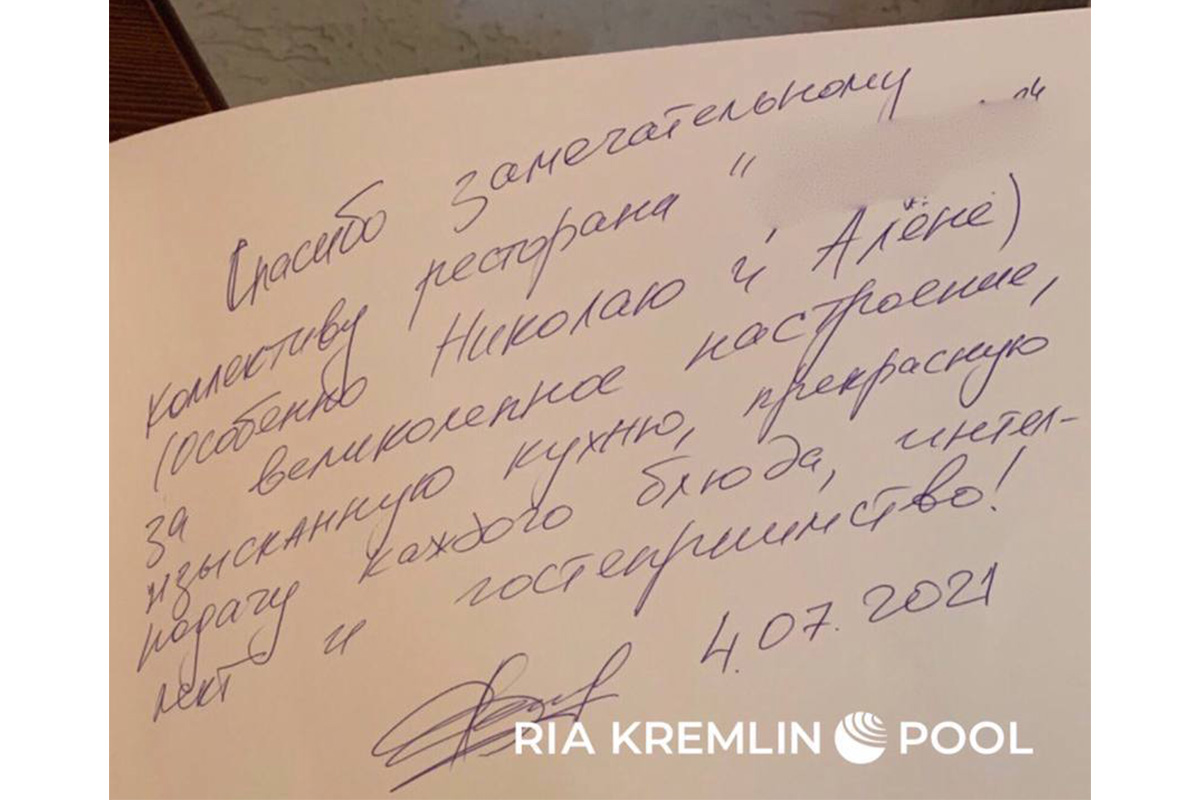 Спасибо замечательному
коллективу ресторана "
(особенно Николаю и Алёне)
за великолепное настроение,
изысканную кухню, прекрасную
подачу каждого блюда, интел-
лект и гостеприимство!
4.07.2021
RIA KREMLIN POOL